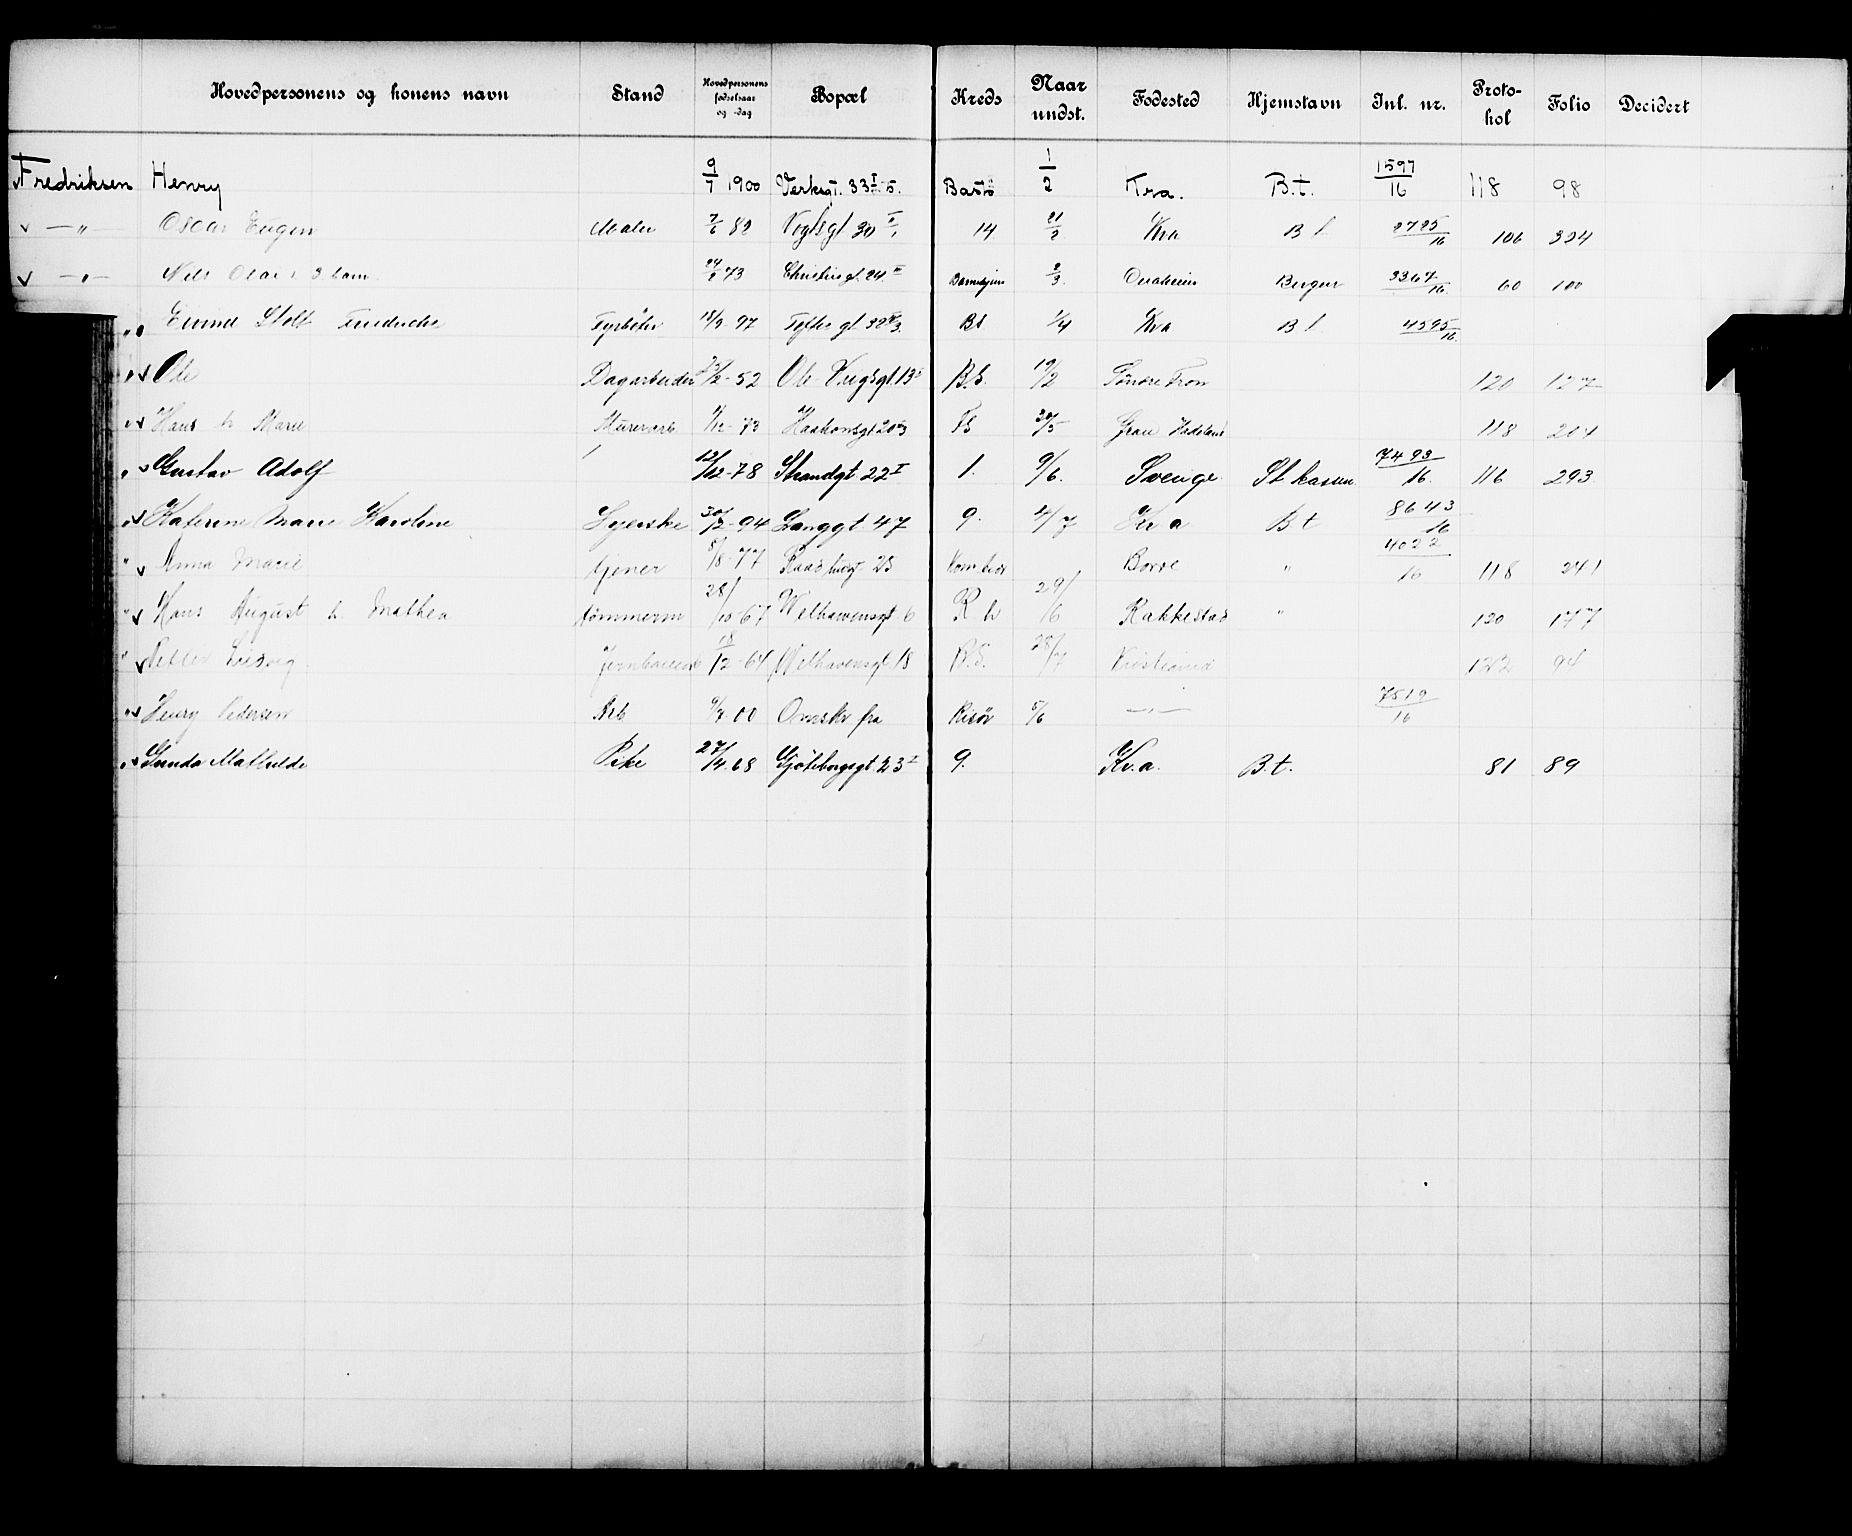 Hovedpersonens og konens navn Stand Hovedpersonens fødselsaar og -dag Bopæl Kreds Naar undst. Fødested Hjemstavn Inl. nr. Proto-kol Folio Decidert
Fredriksen Henry 9/7 1900 Verksgt. 33 I Bastø 1/2 Kra. B.t. 1597/16 118 98
— „ — Oscar Eugen Maler 7/6 82 Vogtsgt 30 14 21/2 Kra B t 2725/16 106 324
— „ — Nils Olai 3 barn 73 Christiesgt. 24 III 2/3 Bergen 3367/16 60 100
„ Fyrbøter 18/9 97 Toftes gt 32 Bt 1/4 Kra B t 4595/16
„ Ole Dagarbeider 2-52 Ole Vigsgt. 13 B.S. 19/2 Søndre Fron 120 127
„ Hans h Marie Murerarb 11/12 - 73 Haakonsgt 20 FS 30/5 Gran Hadeland 118 204
„ Gustav Adolf 12/12-78 Strandgt 22 I 1. 9/6. Sverige St kassen 7493/16. 116 293
„ Katerine Marie Karoline Syerske 30/12-94 Langgt 47 9. 4/7 Kra Bt 8643/16
„ Anna Marie tjener 8/8-77 25 Borre „ 4022/16 118 241
„ Hans August h. Mathea tømmerm 28/10-67 Welhavensgt 6 R h 29/6 Rakkestad „ 130 177
„ Petter Ludvig 18/12-64 Welhavensgt 18 B.S. 28/7 122 94
„ Henry Pedersen Arb 9/7 00 Omskr fra Risør 5/6 — „ — 7519/16
„ Gunda Mathilde Pike 27/4.68 Gjøteborggt 23 I 9. Kr.a. B.t. 81 89